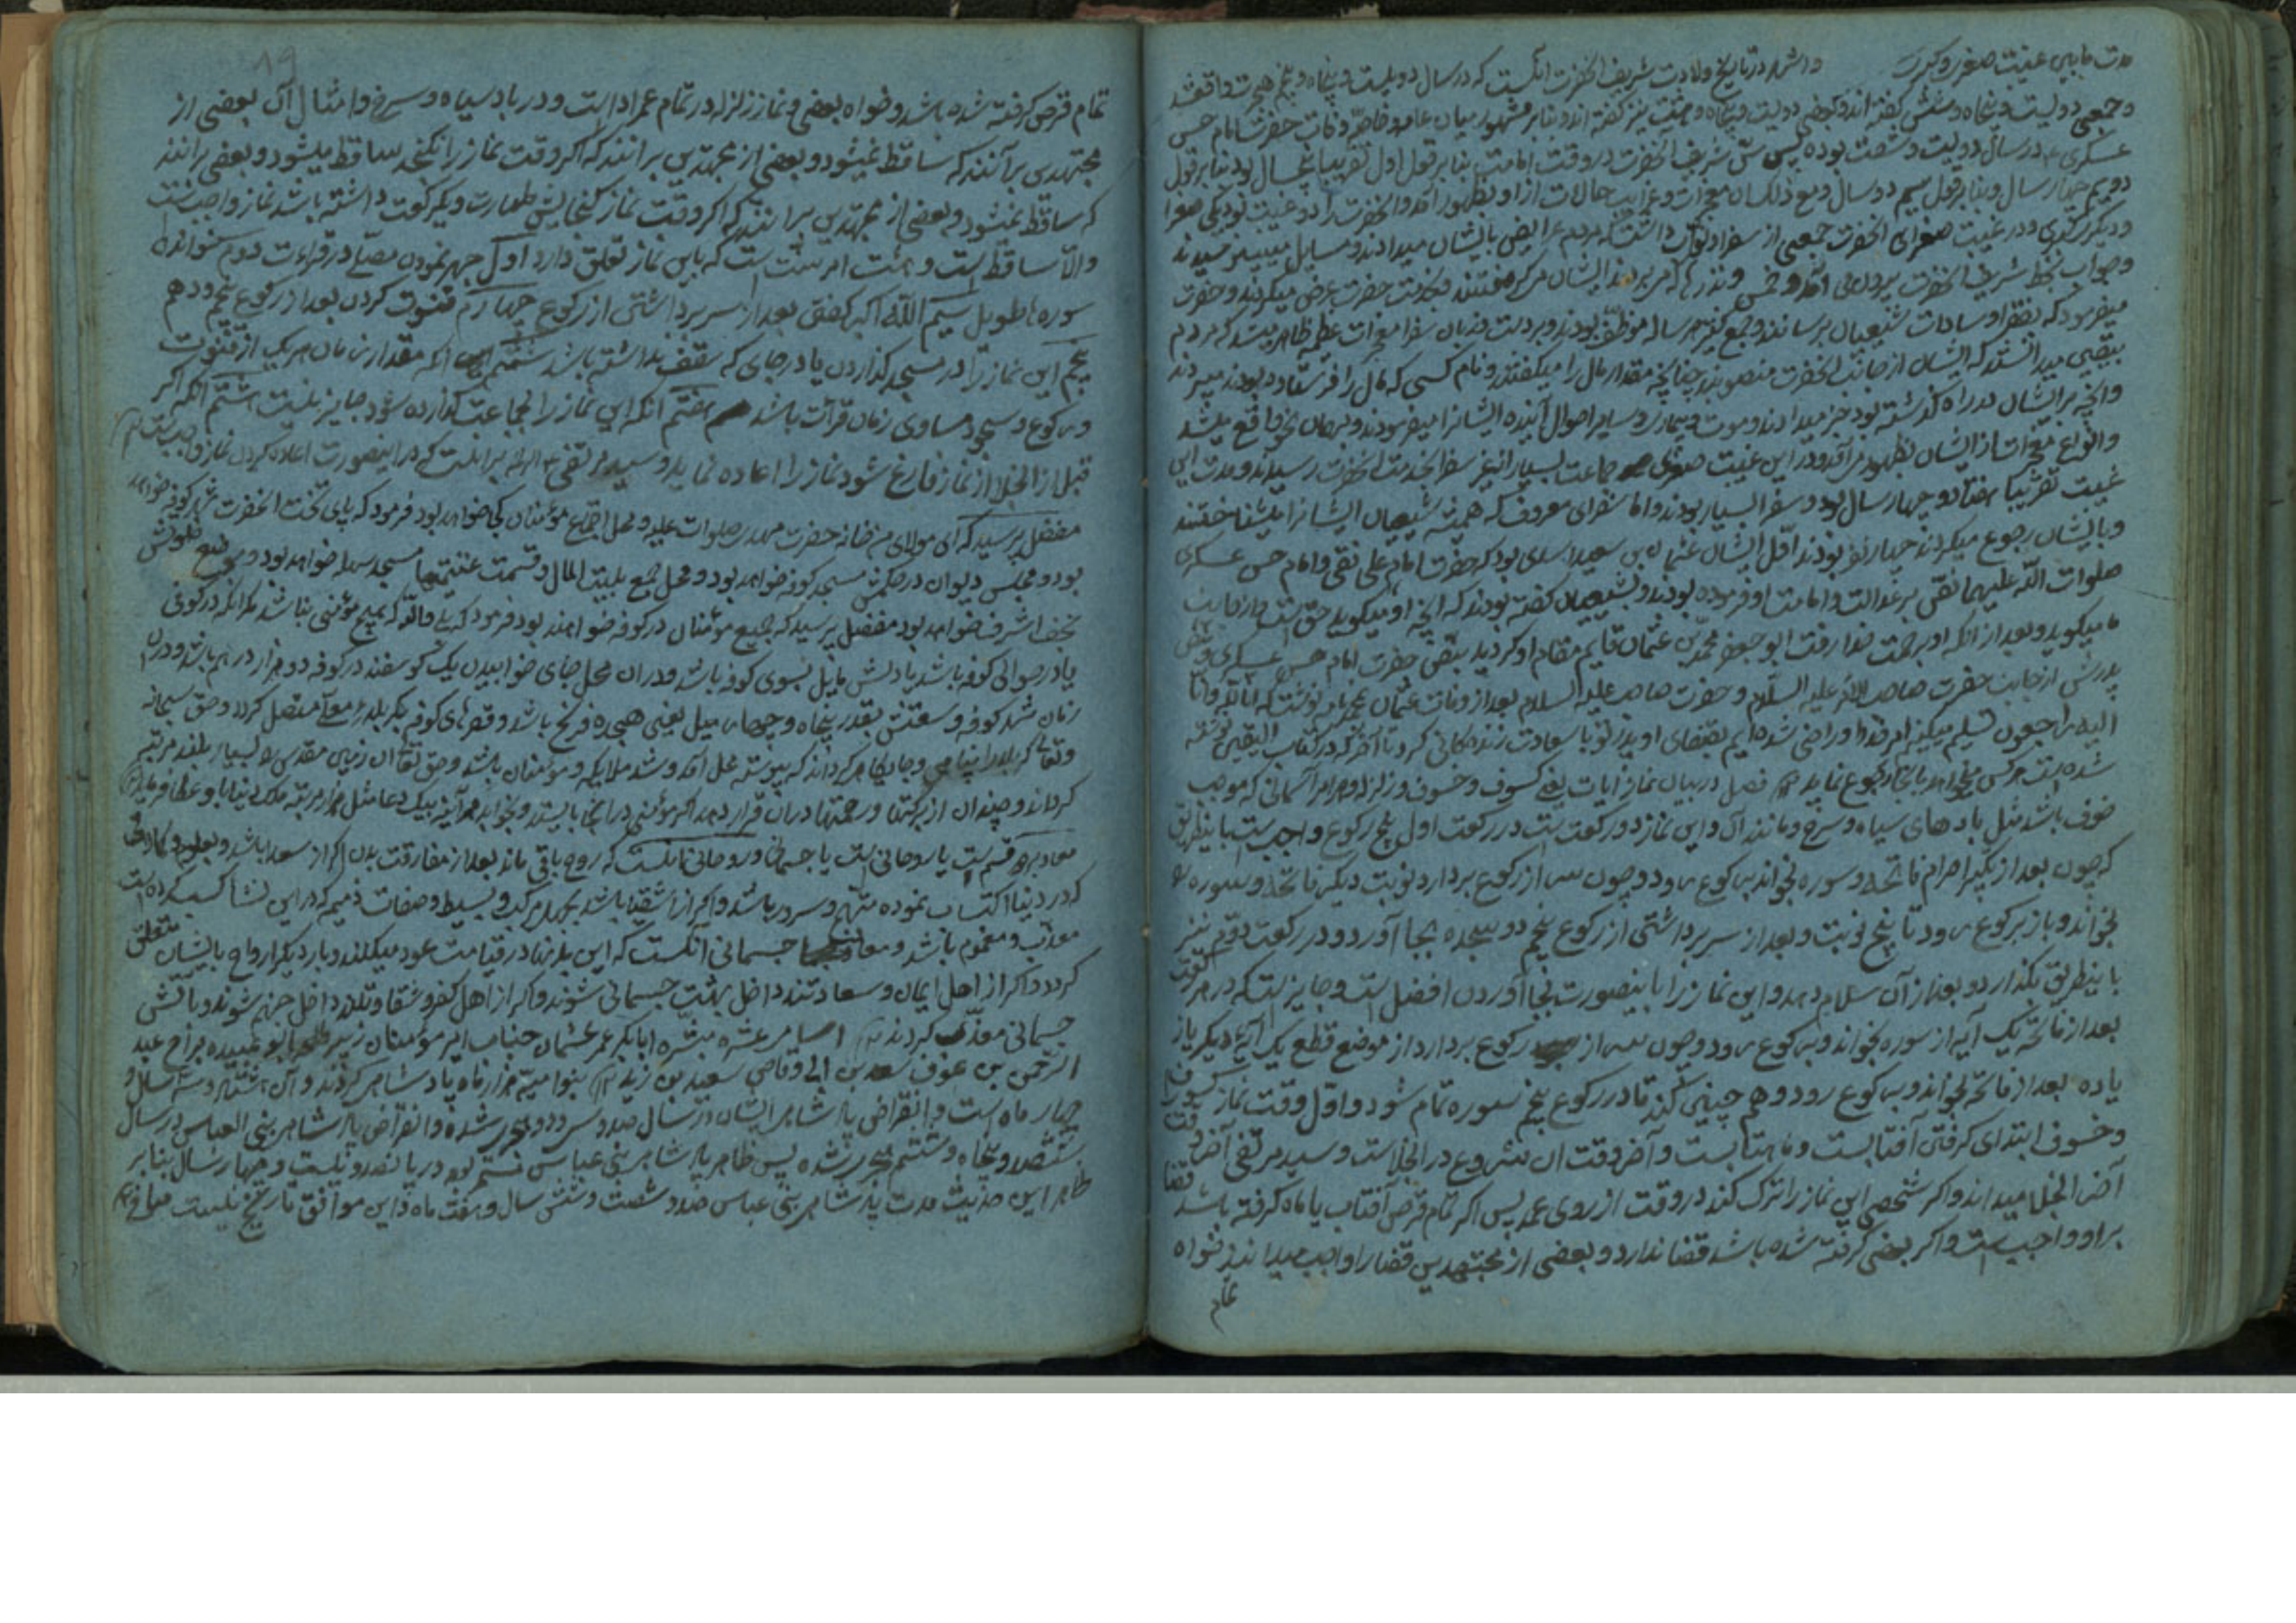 مدت مابین غیبت صغری و کبری واشهر در تاریخ ولادت شریف آنحضرت آنکست که در سال دویست و پنجاه و پنج هجرت واقع شد
و جمعی دویست و پنجاه و شش گفته اند و بعضی دویست و پنجاه و هشت نیز گفته اند و بنابر مشهور میان عامه و خاصه وفات حضرت امام حسن
عسکری در سال دویست و شصت بوده پس سن شریف آنحضرت در وقت امامت بنابر قول اول تقریبا پنج سال بود بنابر قول
دویم چهار سال و بنابر قول سیم دو سال و مع ذلک از آن معجزات و غرایب حالات از او بظهور آمد و آنحضرت را دو غیبت بود یکی صغرا
و دیگر کبری و در غیبت صغرای آنحضرت جمعی از سفرا و نواب داشت که مردم عرایض بایشان میدادند و مسایل میپرسیدند
و جواب بخط شریف آنحضرت بیرون می آمد و خمس و نذرها که مردم نزد ایشان میگفتند بخدمت حضرت عرض میکردند و حضرت
میفرمود که بفقرا و سادات شیعیان برسانند و جمع کثیر هر ساله موظف بودند و بر دست و زبان سفرا معجزات عظیمه ظاهر میشد که مردم
بیقین میدانستند که ایشان از جانب آنحضرت منصوبند چنانچه مقدار مال را میگفتند و نام کسی که مال را فرستاده بود میبردند
و آنچه بر ایشان در راه گذشته بود خبر میدادند و موت و بیماری و سایر احوال آینده ایشانرا میفرمودند و بهمان نحو واقع میشد
و انواع معجزات از ایشان بظهور می آمد و در این غیبت صغری جماعت بسیار از غیر سفرا بخدمت آنحضرت رسیدند و مدت این
غیبت تقریبا هفتاد و چهار سال بود و سفرا بسیار بودند و اما سفرای معروف که همیشه شیعیان ایشانرا میشناختند
و بایشان رجوع میکردند چهار نفر بودند اول ایشان عثمان بن سعید اسدی بود که حضرت امام علی نقی و امام حسن عسکری
صلوات الله علیهما نص بر عدالت و امامت او فرموده بودند و بشیعیان گفته بودند که آنچه او میگوید حق است و از جانب
ما میگوید و بعد از آنکه او برحمت خدا رفت ابو جعفر محمد بن عثمان قایم مقام او گردید بنص حضرت امام حسن عسکری و نص
پدرش از جانب حضرت صاحب الامر علیه السلام و حضرت صاحب علیه السلام بعد از وفات عثمان بمحمد نامه نوشت که انا لله و انا
الیه راجعون تسلیم میکنیم امر خدا را و راضی شده ایم بقضای او پدر تو با سعادت زندگانی کرد تا آخر که در کتاب حق الیقین نوشته
شده است هر کس میخواهد بآنجا رجوع نماید فصل در بیان نماز آیات یعنی کسوف و خسوف و زلزله و هر امر آسمانی که موجب
خوف باشد مثل بادهای سیاه و سرخ و مانند آن و این نماز دو رکعت است در رکعت اول پنج رکوع واجبست باینطریق
که چون بعد از تکبیر احرام فاتحه و سوره بخواند برکوع رود و چون سر از رکوع بردارد نوبت دیگر فاتحه و سوره را
بخواند و باز برکوع رود تا پنج نوبت و بعد از سر برداشتن از رکوع پنجم دو سجده بجا آورد و در رکعت دوم نیز
باینطریق بگذارد و بعد از آن سلام دهد و این نماز را باینصورت بجا آوردن افضل است و جایز است که در هر رکعت
بعد از فاتحه یک آیه از سوره بخواند و برکوع رود و چون سر از رکوع بردارد از موضع قطع یک آیه دیگر یا زیاده
یا ده بعد از فاتحه بخواند و برکوع رود و همچنین کند تا در رکوع پنجم سوره تمام شود و اول وقت نماز کسوف
و خسوف ابتدای گرفتن آفتابست و ماهتابست و آخر وقت آن شروع در انجلاست و سید مرتضی آخر وقت
آخر انجلا میداند و اگر شخصی این نماز را ترک کند در وقت از روی عمد پس اگر تمام قرص آفتاب یا ماه گرفته باشد قضا
بر او واجب است و اگر بعضی گرفته شده باشد قضا ندارد و بعضی از مجتهدین قضا را واجب میدانند خواه
تمام
۱۹
تمام قرص گرفته شده باشد و خواه بعضی و نماز زلزله در تمام عمر اداست و در باد سیاه و سرخ و امثال آن بعضی از
مجتهدین برآنند که ساقط نمیشود و بعضی از مجتهدین برانند که اگر وقت نماز را نگنجد ساقط میشود و بعضی برانند
که ساقط نمیشود و بعضی از مجتهدین برانند که اگر وقت نماز گنجایش طهارت و یکرکعت داشته باشد نماز واجبست
والا ساقط است و هشت امر سنت است که باین نماز تعلق دارد اول جهر نمودن مصلی در قراءت دوم خواندن
سوره طویل سیم الله اکبر گفتن بعد از سر برداشتن از رکوع چهارم قنوت کردن بعد از رکوع پنجم و دهم
پنجم این نماز را در مسجد گذاردن یا در جای که سقف نداشته باشد ششم آنکه مقدار زمان هر یک از قنوت
و رکوع و سجود مساوی زمان قرآت باشد هفتم آنکه این نماز را بجماعت گذارده شود جایز نیست هشتم آنکه اگر
قبل از انجلا از نماز فارغ شود نماز را اعاده نماید و سید مرتضی برانست که در اینصورت اعاده کردن نماز واجب است
مفضل پرسید که ای مولای من خانه حضرت مهدی صلوات علیه و محل اجتماع مؤمنان کجا خواهد بود فرمود که پای تخت آنحضرت شهر کوفه خواهد
بود و مجلس دیوان و حکمش مسجد کوفه خواهد بود و محل جمع بیت المال و قسمت غنیمتها مسجد سهله خواهد بود و موضع خلوتش
نجف اشرف خواهد بود مفضل پرسید که جمیع مؤمنان در کوفه خواهند بود فرمود که بلی والله که هیچ مؤمنی نباشد مگر آنکه در کوفه
یا در حوالی کوفه باشد یا دلش مایل بسوی کوفه باشد و در آن محل جای خوابیدن یک گوسفند در کوفه دو هزار درهم باشد و در آن
زمان شهر کوفه وسعتش بقدر پنجاه و چهار میل یعنی هجده فرسخ باشد و قصرهای کوفه بکربلای معلی متصل گردد و حق سبحانه
و تعالی کربلا را پناهی و جایگاهی گرداند که پیوسته محل آمد و شد ملایکه و مؤمنان باشد و حق تعالی آن زمین مقدس را بسیار بلند مرتبه
گرداند و چندان از برکتها و رحمتها در آن قرار دهد که اگر مؤمنی در آنجا بایستد و بخواند هر آینه بیک دعا مثل هزار مرتبه ملک دنیا باو عطا فرماید
معاد بر دو قسم است یا روحانی است یا جسمانی و روحانی آنست که روح باقی ماند بعد از مفارقت بدن اگر از سعدا باشد و بعلوم و کمالات
که در دنیا اکتساب نموده مبتهج و مسرور باشد و اگر از اشقیا باشد بجهل مرکب و بسیط و صفات ذمیمه که در این نشأ کسب کرده است
معذب و مغموم باشد و معاد جسمانی آنکست که این بدنها در قیامت عود میکنند و بار دیگر ارواح بایشان متعلق
گردد و اگر از اهل ایمان و سعادتند داخل بهشت جسمانی شوند و اگر از اهل کفر و شقاوتند داخل جهنم شوند و بآتش
جسمانی معذب گردند اسامی عشره مبشره ابابکر عمر عثمان جناب امیر مؤمنان زبیر طلحه ابو عبیده جراح عبد
الرحمن بن عوف سعد بن ابی وقاص سعید بن زید بنو امیه هزار ماه پادشاهی کردند و آن هشتاد و سه سال و
چهار ماه است و انقراض پادشاهی ایشان در سال صد و سی و دو هجری شده و انقراض پادشاهی بنی العباس در سال
ششصد و پنجاه و ششم هجری شده پس ظاهر پادشاهی بنی عباس قسمتم بود در پانصد و بیست و چهار سال بنابر
ظاهر این حدیث مدت پادشاهی بنی عباس صد و شصت و شش سال و هفت ماه و این موافق تاریخ نیست